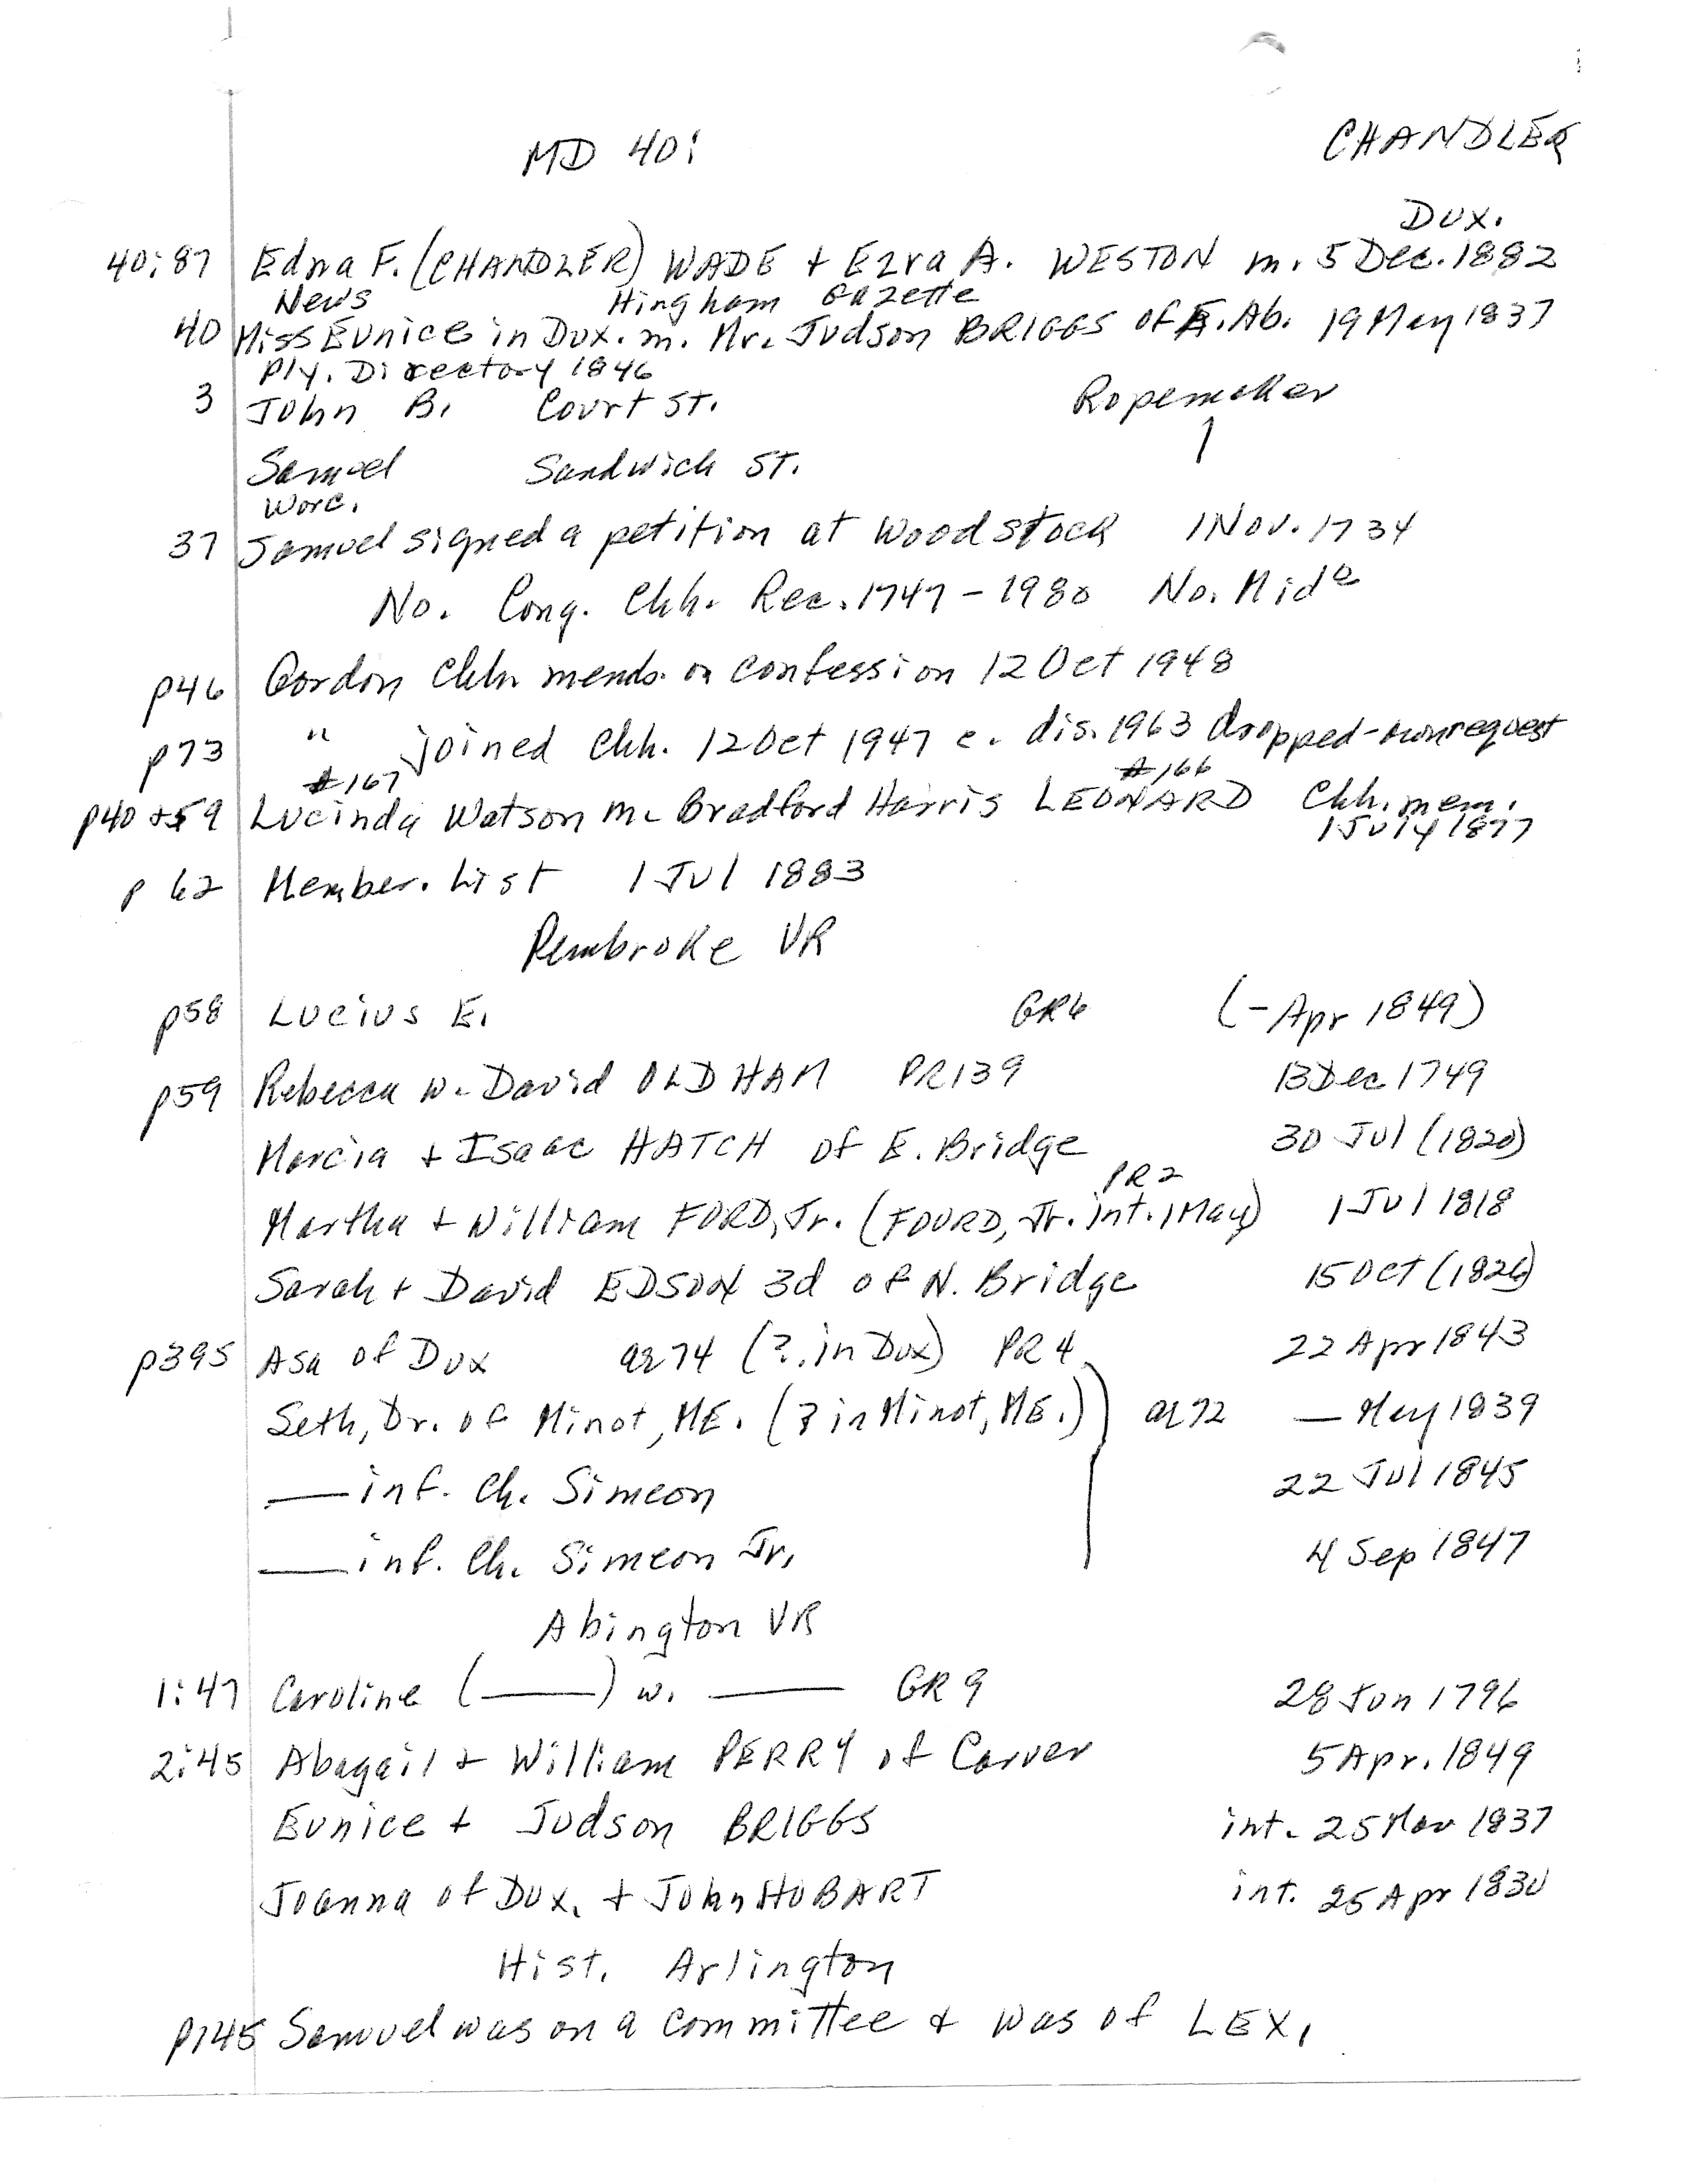 MD 40: CHANDLER
Dux.
40:87 Edna F. (CHANDLER) WADE + Ezra A. WESTON m. 5 Dec. 1882
News Hingham Gazette
40 Miss Eunice in Dux. m. Mr. Judson BRIGGS of E. Ab. 19 May 1837
Ply. Directory 1846
3 John B. Court St. Ropemaker
Samuel Sandwich St. "
Worc.
37 Samuel signed a petition at Woodstock 1 Nov. 1734
No. Cong. Chh. Rec. 1747-1980 No. Mid
p46 Gordon Chh mends. on confession 12 Oct 1948
p73 " joined Chh. 12 Oct 1947 c. dis. 1963 dropped-own request
#167 #166
p40+59 Lucinda Watson m. Bradford Harris LEONARD Chh. mem.
1 July 1877
p 62 Member. List 1 Jul 1883
Pembroke VR
p58 Lucius E. GR6 (- Apr 1849)
p59 Rebecca w. David OLDHAM PR139 13 Dec 1749
Marcia + Isaac HATCH of E. Bridge 30 Jul (1820)
PR2
Martha + William FORD, Jr. (FOURD, Jr. int. 1 May) 1 Jul 1818
Sarah + David EDSON 3d of N. Bridge 15 Oct (1826)
p395 Asa of Dux ae 74 (?. in Dux) PR4 22 Apr 1843
Seth, Dr. of Minot, ME. (? in Minot, ME.) ae 72 — May 1839
— inf. Ch. Simeon 22 Jul 1845
— inf. Ch. Simeon Jr. 4 Sep 1847
Abington VR
1:47 Caroline (—) w. — GR 9 28 Jun 1796
2:45 Abagail + William PERRY of Carver 5 Apr. 1849
Eunice + Judson BRIGGS int. 25 Mar 1837
Joanna of Dux. + John HOBART int. 25 Apr 1830
Hist. Arlington
p145 Samuel was on a committee + was of LEX.